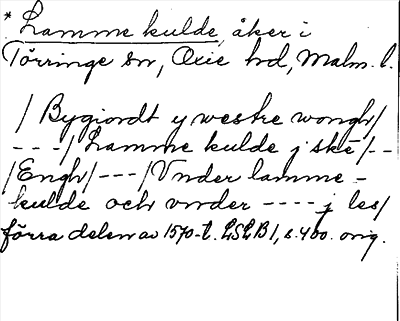 * Lamme kulde, åker i
Törringe sn, Oxie hd, Malm. l.
/ Bygiordt y westre wongh/
---/ Lamme kulde j skē/--
/Engh/---/Vnder lamme-
kulde och vnder ---- j les/
förra delen av 1570-t. LSLB1, s. 400. orig.